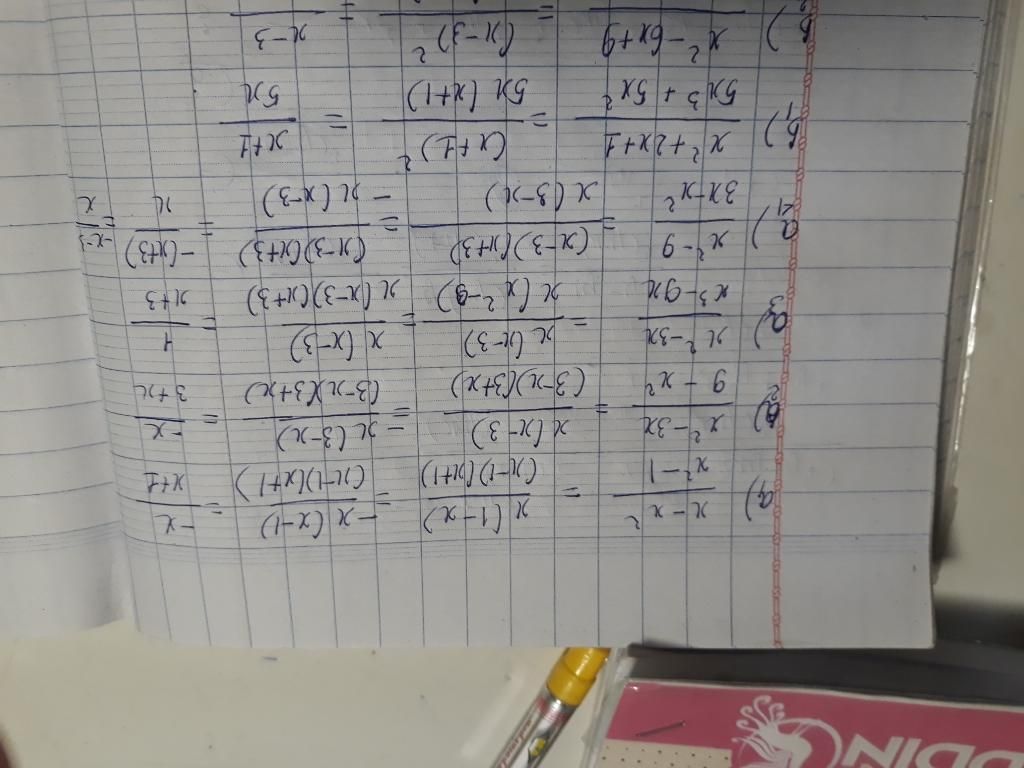 a) (x - x²)/(x² - 1) = x(1 - x)/(x-1)(x+1) = -x(x-1)/(x-1)(x+1) = -x/(x+1)
a₂) (x² - 3x)/(9 - x²) = x(x-3)/(3-x)(3+x) = -x(3-x)/(3-x)(3+x) = -x/(3+x)
a₃) (x² - 3x)/(x³ - 9x) = x(x-3)/x(x² - 9) = x(x-3)/x(x-3)(x+3) = 1/(x+3)
a₄) (x² - 9)/(3x - x²) = (x-3)(x+3)/x(3-x) = (x-3)(x+3)/-x(x-3) = -(x+3)/x = (-x-3)/x
b₁) (x² + 2x + 1)/(5x³ + 5x²) = (x+1)²/5x(x+1) = (x+1)/5x
b₂) x² - 6x + 9 = (x-3)² = x-3
DDIN